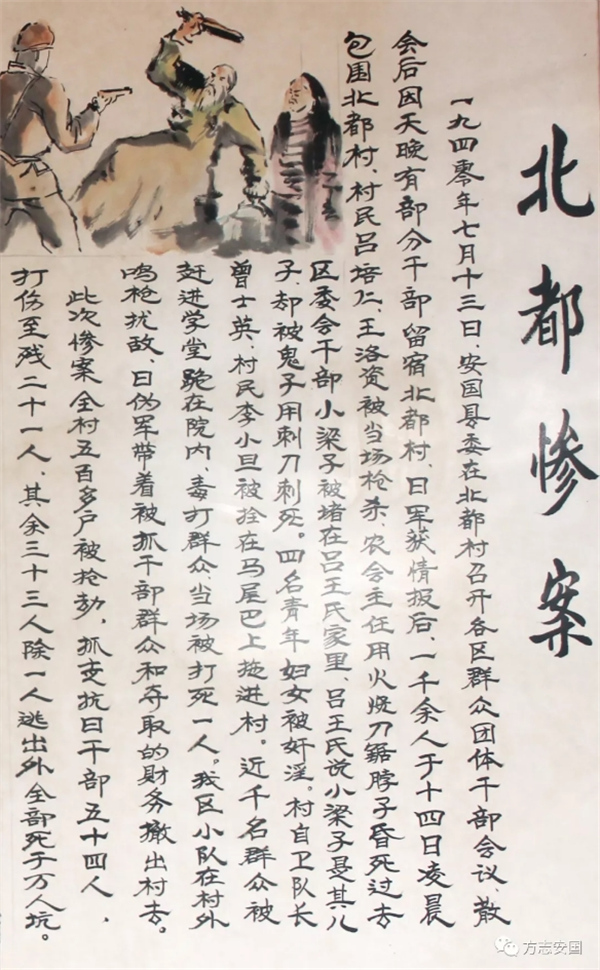 北都惨案
一九四零年七月十三日，安国县委在北都村召开各区群众团体干部会议、散
会后因天晚有部分干部留宿北都村、日军获情报后、一千余人于十四日凌晨
包围北都村、村民吕培仁、王洛资被当场枪杀、农会主任用火烧刀锯脖子昏死过去
区委会干部小梁子被堵在吕王氏家里、吕王氏说小梁子是其儿
子、却被鬼子用刺刀刺死。四名青年妇女被奸淫。村自卫队长
曾士英、村民李小旦被拴在马尾巴上拖进村。近千名群众被
赶进学堂跪在院内、毒打群众、当场被打死一人。我区小队在村外
鸣枪扰敌、日伪军带着被抓干部群众和夺取的财务撤出村去。
此次惨案全村五百多户被抢劫，抓走抗日干部五十四人，
打伤至残二十一人、其余三十三人除一人逃出外全部死于万人坑。
方志安国